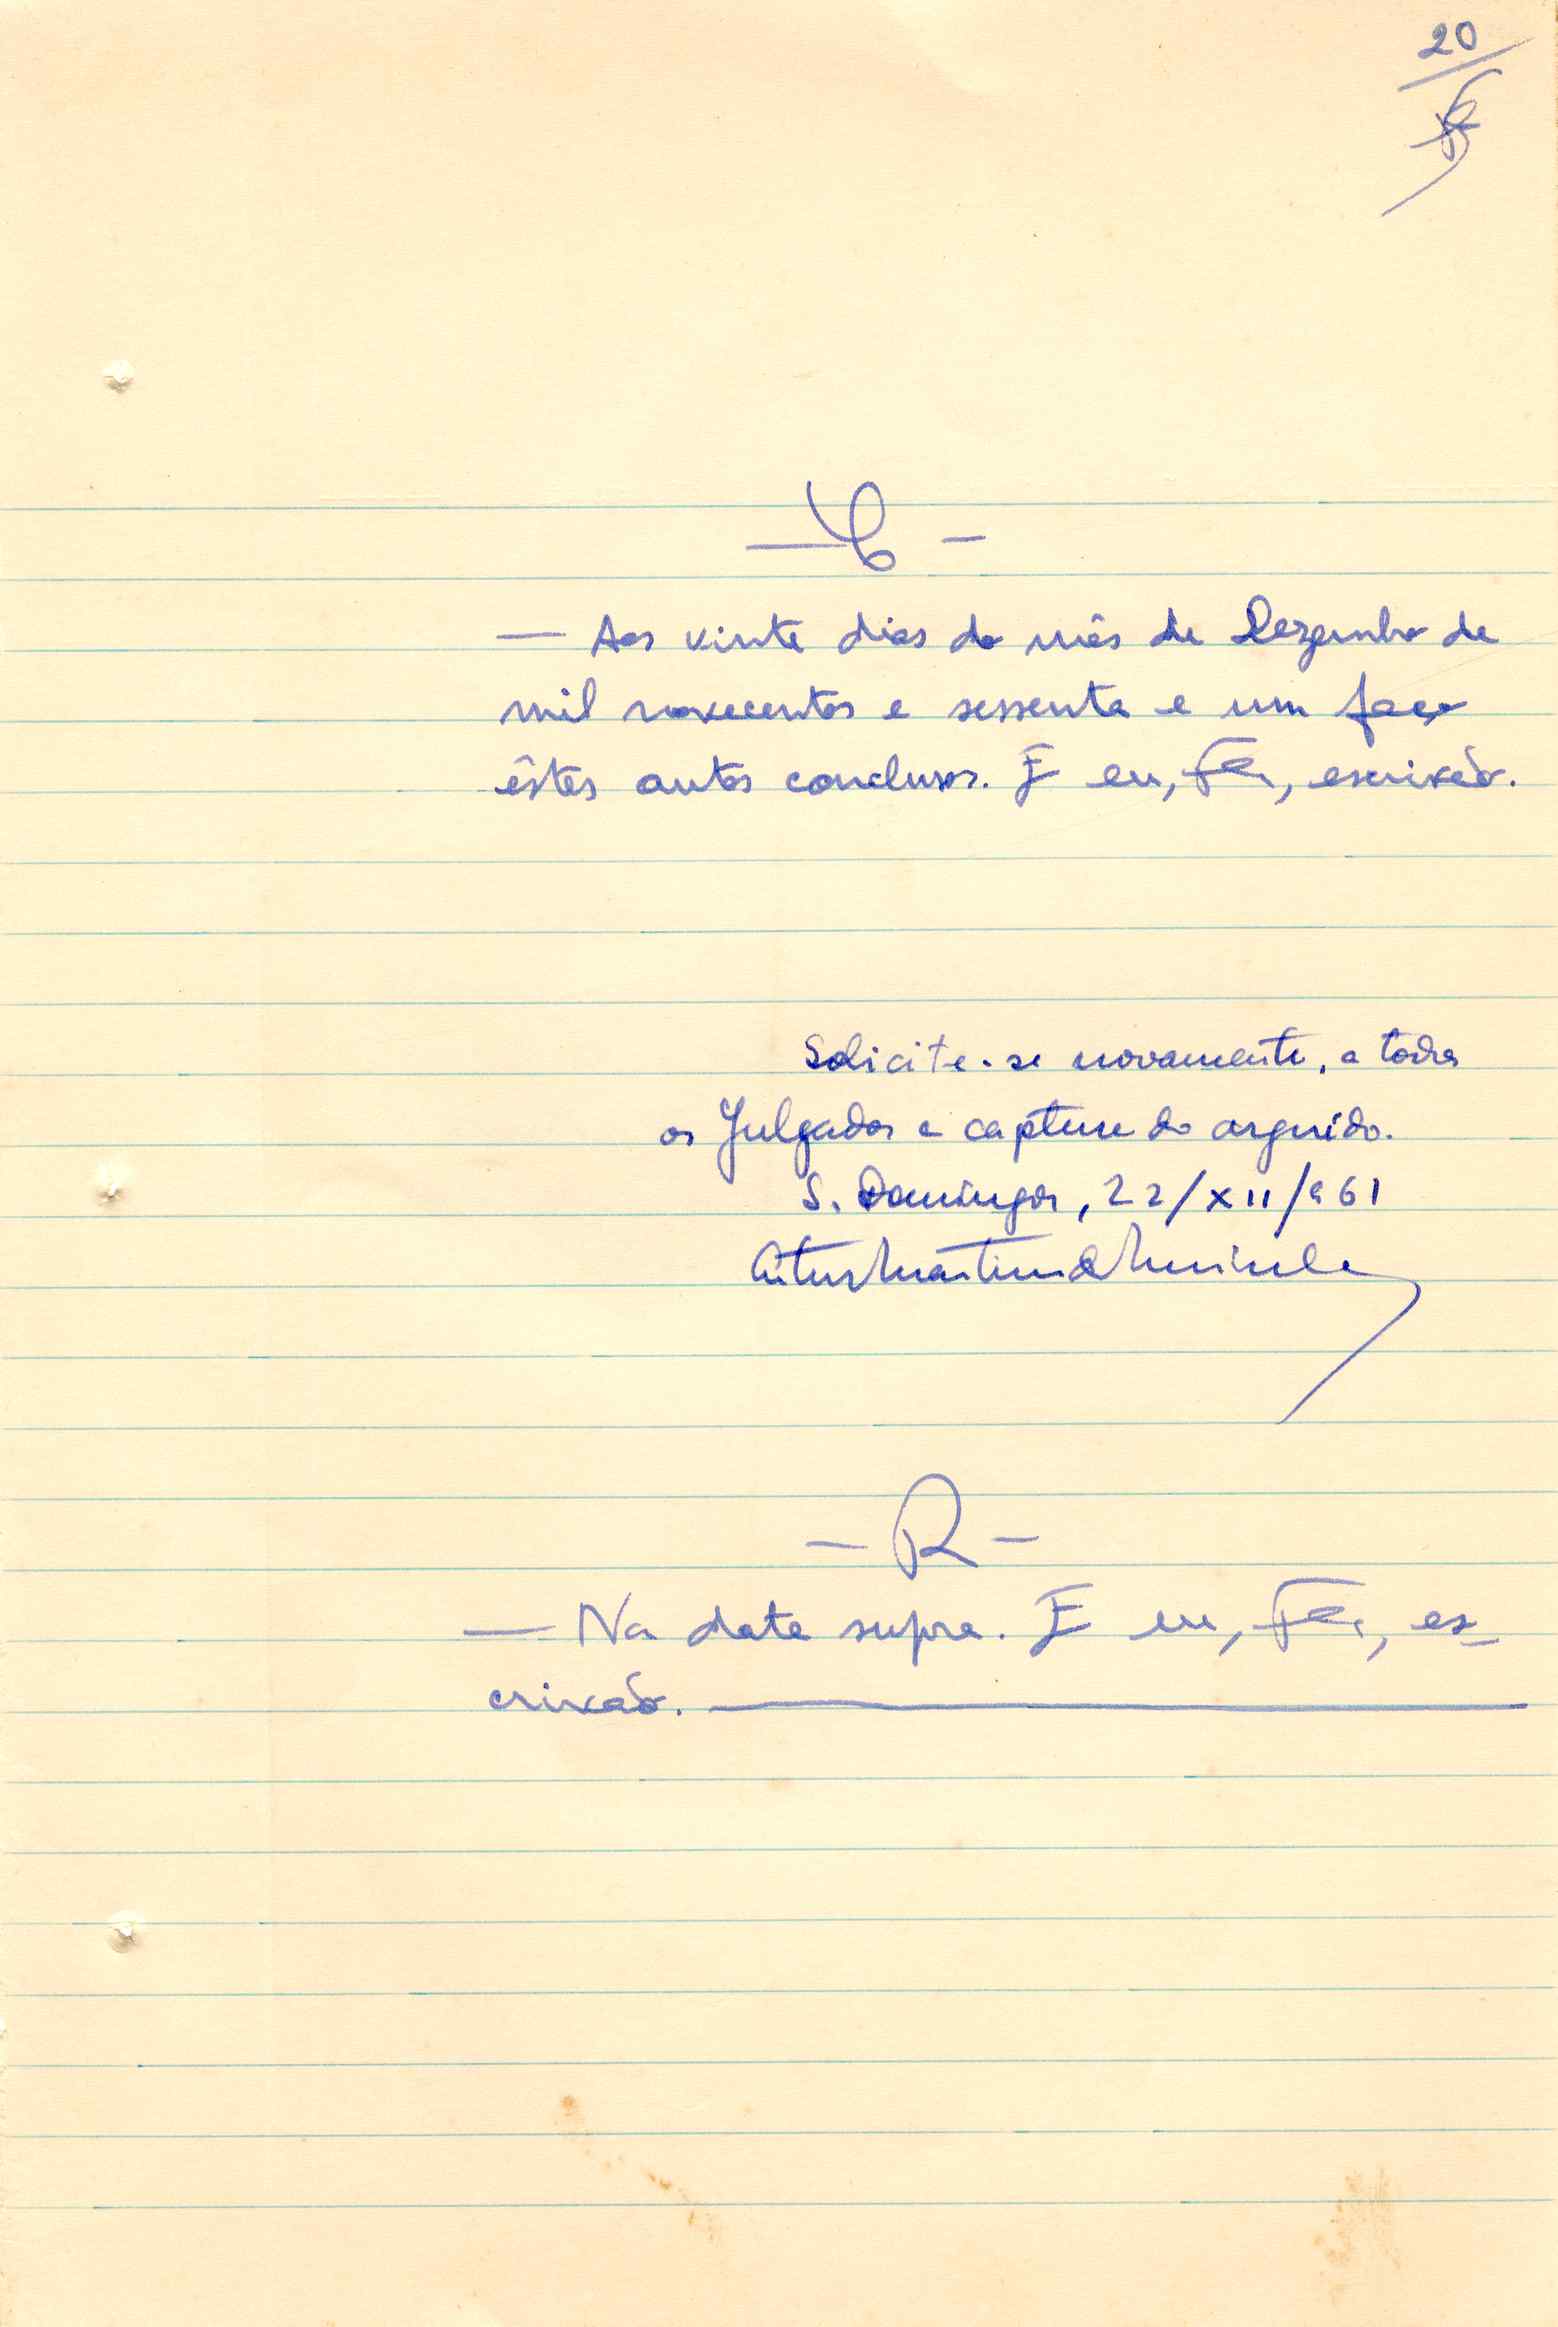 20
— C —
— Aos vinte dias do mês de Dezembro de
mil novecentos e sessenta e um faço
êstes autos conclusos. E eu, , escrivão.
Solicite-se novamente, a todos
os Julgados a captura do arguido.
S. Domingos, 22/XII/961
— R —
— Na data supra. E eu, , es-
crivão.